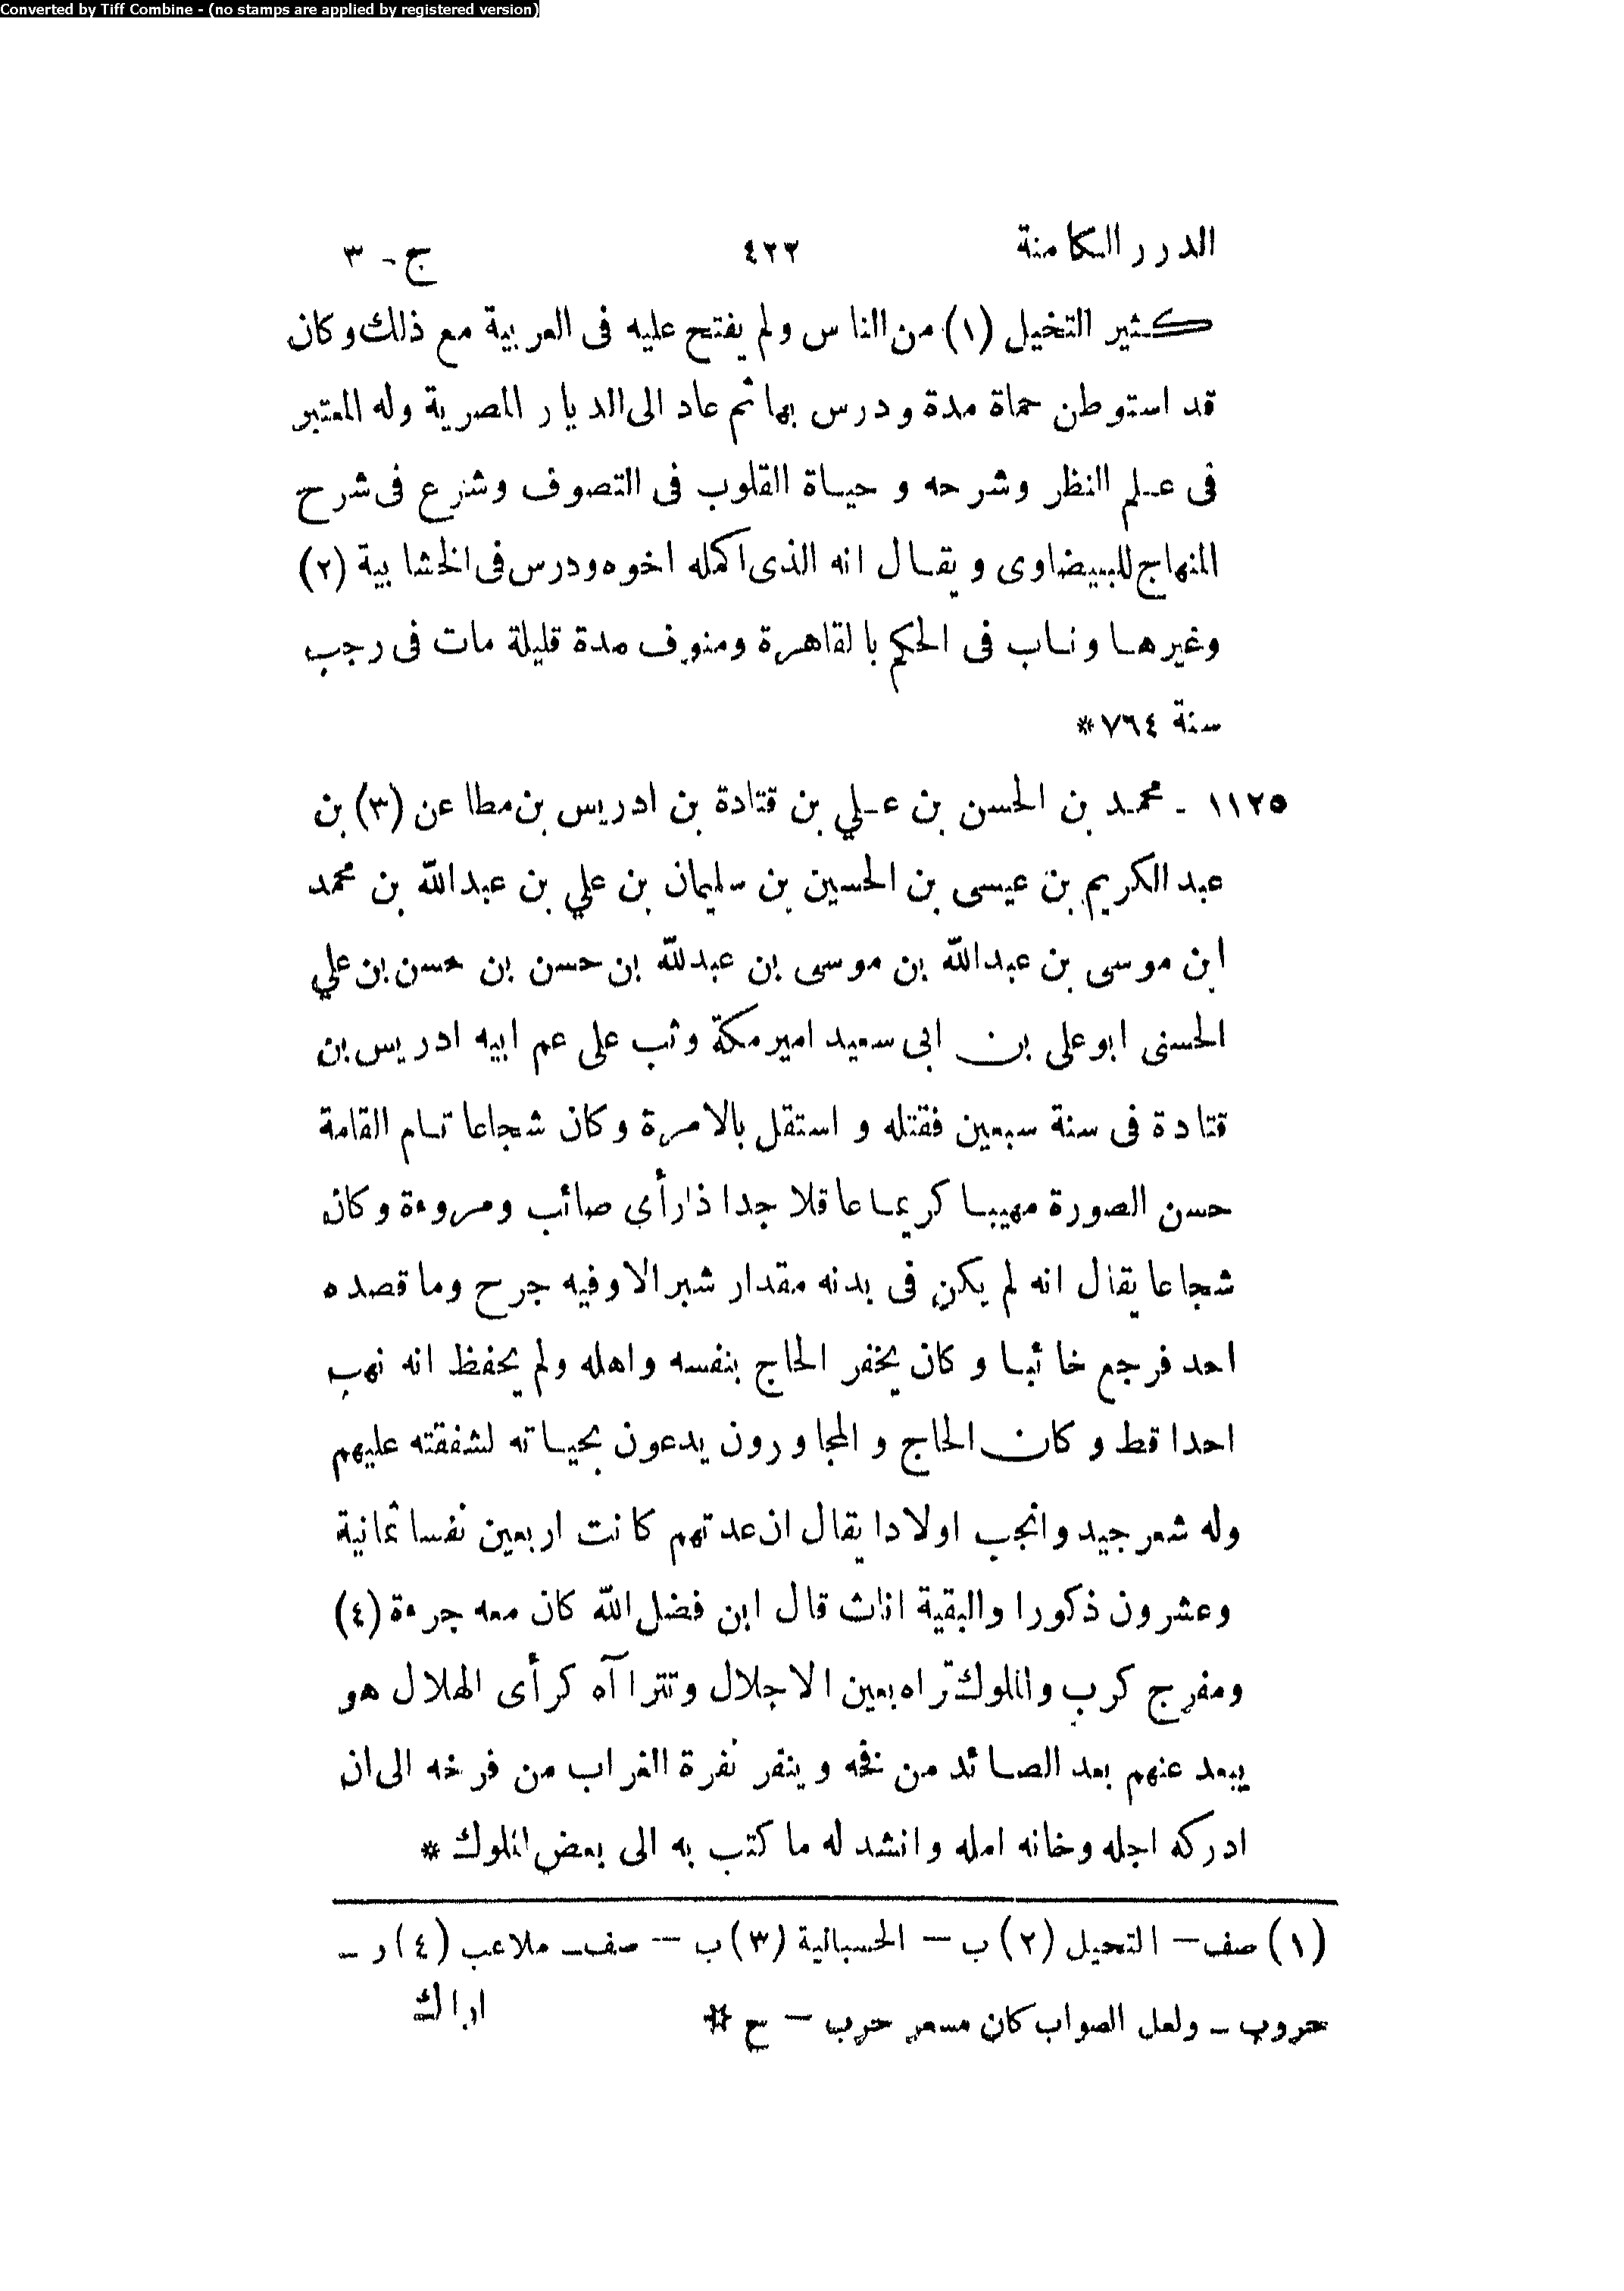 Converted by Tiff Combine - (no stamps are applied by registered version)
الدرر الكامنة ٤٢٣ ج - ٣
كثير التخيل (١) من الناس ولم يفتح عليه فى العربية مع ذلك وكان
قد استوطن حماة مدة ودرس بها ثم عاد الى الديار المصرية وله المعتبر
فى علم النظر وشرحه و حياة القلوب فى التصوف وشرع فى شرح
المنهاج للبيضاوى ويقال انه الذى اكمله اخوه ودرس فى الخشابية (٢)
وغيرها وناب فى الحكم بالقاهرة ومنوف مدة قليلة مات فى رجب
سنة ٧٦٤ *
١١٢٥ - محمد بن الحسن بن علي بن قتادة بن ادريس بن مطاعن (٣) بن
عبد الكريم بن عيسى بن الحسين بن سليمان بن علي بن عبد الله بن محمد
ابن موسى بن عبد الله بن موسى بن عبدلله بن حسن بن حسن بن علي
الحسنى ابو على بن ابى سعيد امير مكة وثب على عم ابيه ادريس بن
قتادة فى سنة سبعين فقتله و استقل بالامرة وكان شجاعا تام القامة
حسن الصورة مهيبا كريما عاقلا جدا ذا رأى صائب ومروءة وكان
شجاعا يقال انه لم يكن فى بدنه مقدار شبر الا وفيه جرح وما قصده
احد فرجع خائبا و كان يخفر الحاج بنفسه واهله ولم يحفظ انه نهب
احدا قط و كان الحاج و المجاورون يدعون بحياته لشفقته عليهم
وله شعر جيد وانجب اولادا يقال ان عدتهم كانت اربعين نفسا ثمانية
وعشرون ذكورا والبقية اناث قال ابن فضل الله كان معه جرءة (٤)
ومفرج كرب والملوك تراه بعين الاجلال وتتراآه كرأى الهلال هو
يبعد عنهم بعد الصائد من فخه وينفر نفرة الغراب من فرخه الى ان
ادركه اجله وخانه امله وانشد له ما كتب به الى بعض الملوك *
(١) صف — التحيل (٢) ب — الحسبانية (٣) ب — صف - ملاعب (٤) ر -
حروب - ولعل الصواب كان مسعر حرب — ح *
اراك